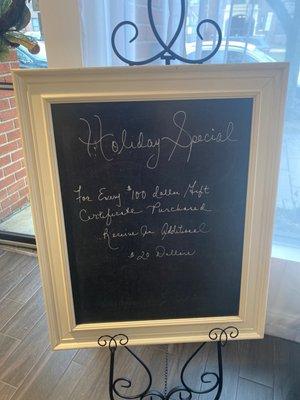 Holiday Special
For Every $100 dollar Gift
Certificate Purchased
Receive An Additional
$20 Dollars